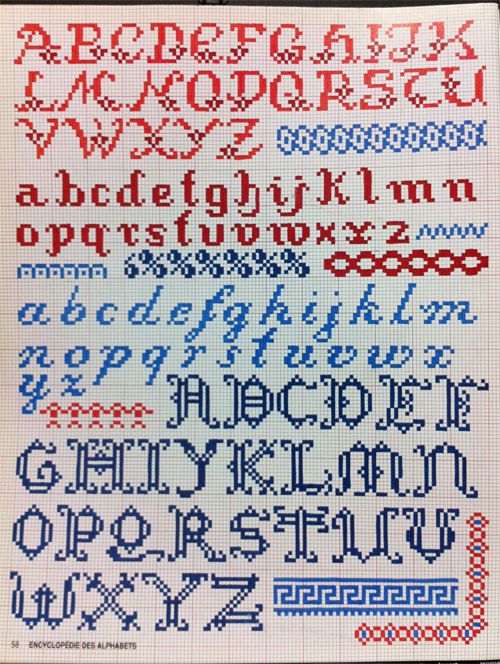 ABCDEFGHIJK
LMNOPQRSTU
VWXYZ
abcdefghijklmn
opqrstuvwxyz
abcdefghijklm
nopqrstuvwx
yz
ABCDEF
GHIJKLMN
OPQRSTUV
WXYZ
58 ENCYCLOPÉDIE DES ALPHABETS